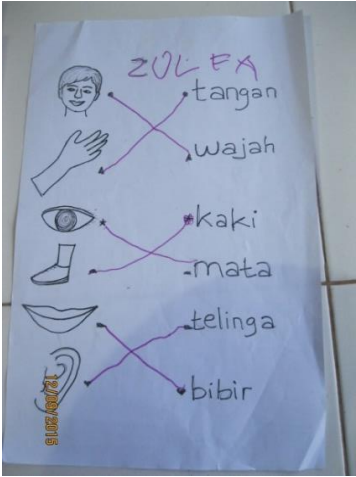 ZULFA
tangan
wajah
kaki
mata
telinga
bibir
12/08/2015